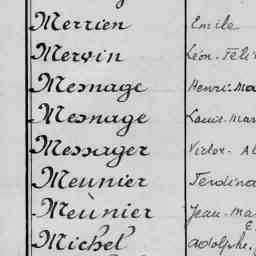 Merrien Emile
Mervin Léon-Féli
Mesnage Henri-Ma
Mesnage Louis-Mar
Messager Victor-Al
Meunier Ferdina
Meunier Jean-Ma
Michel Adolphe